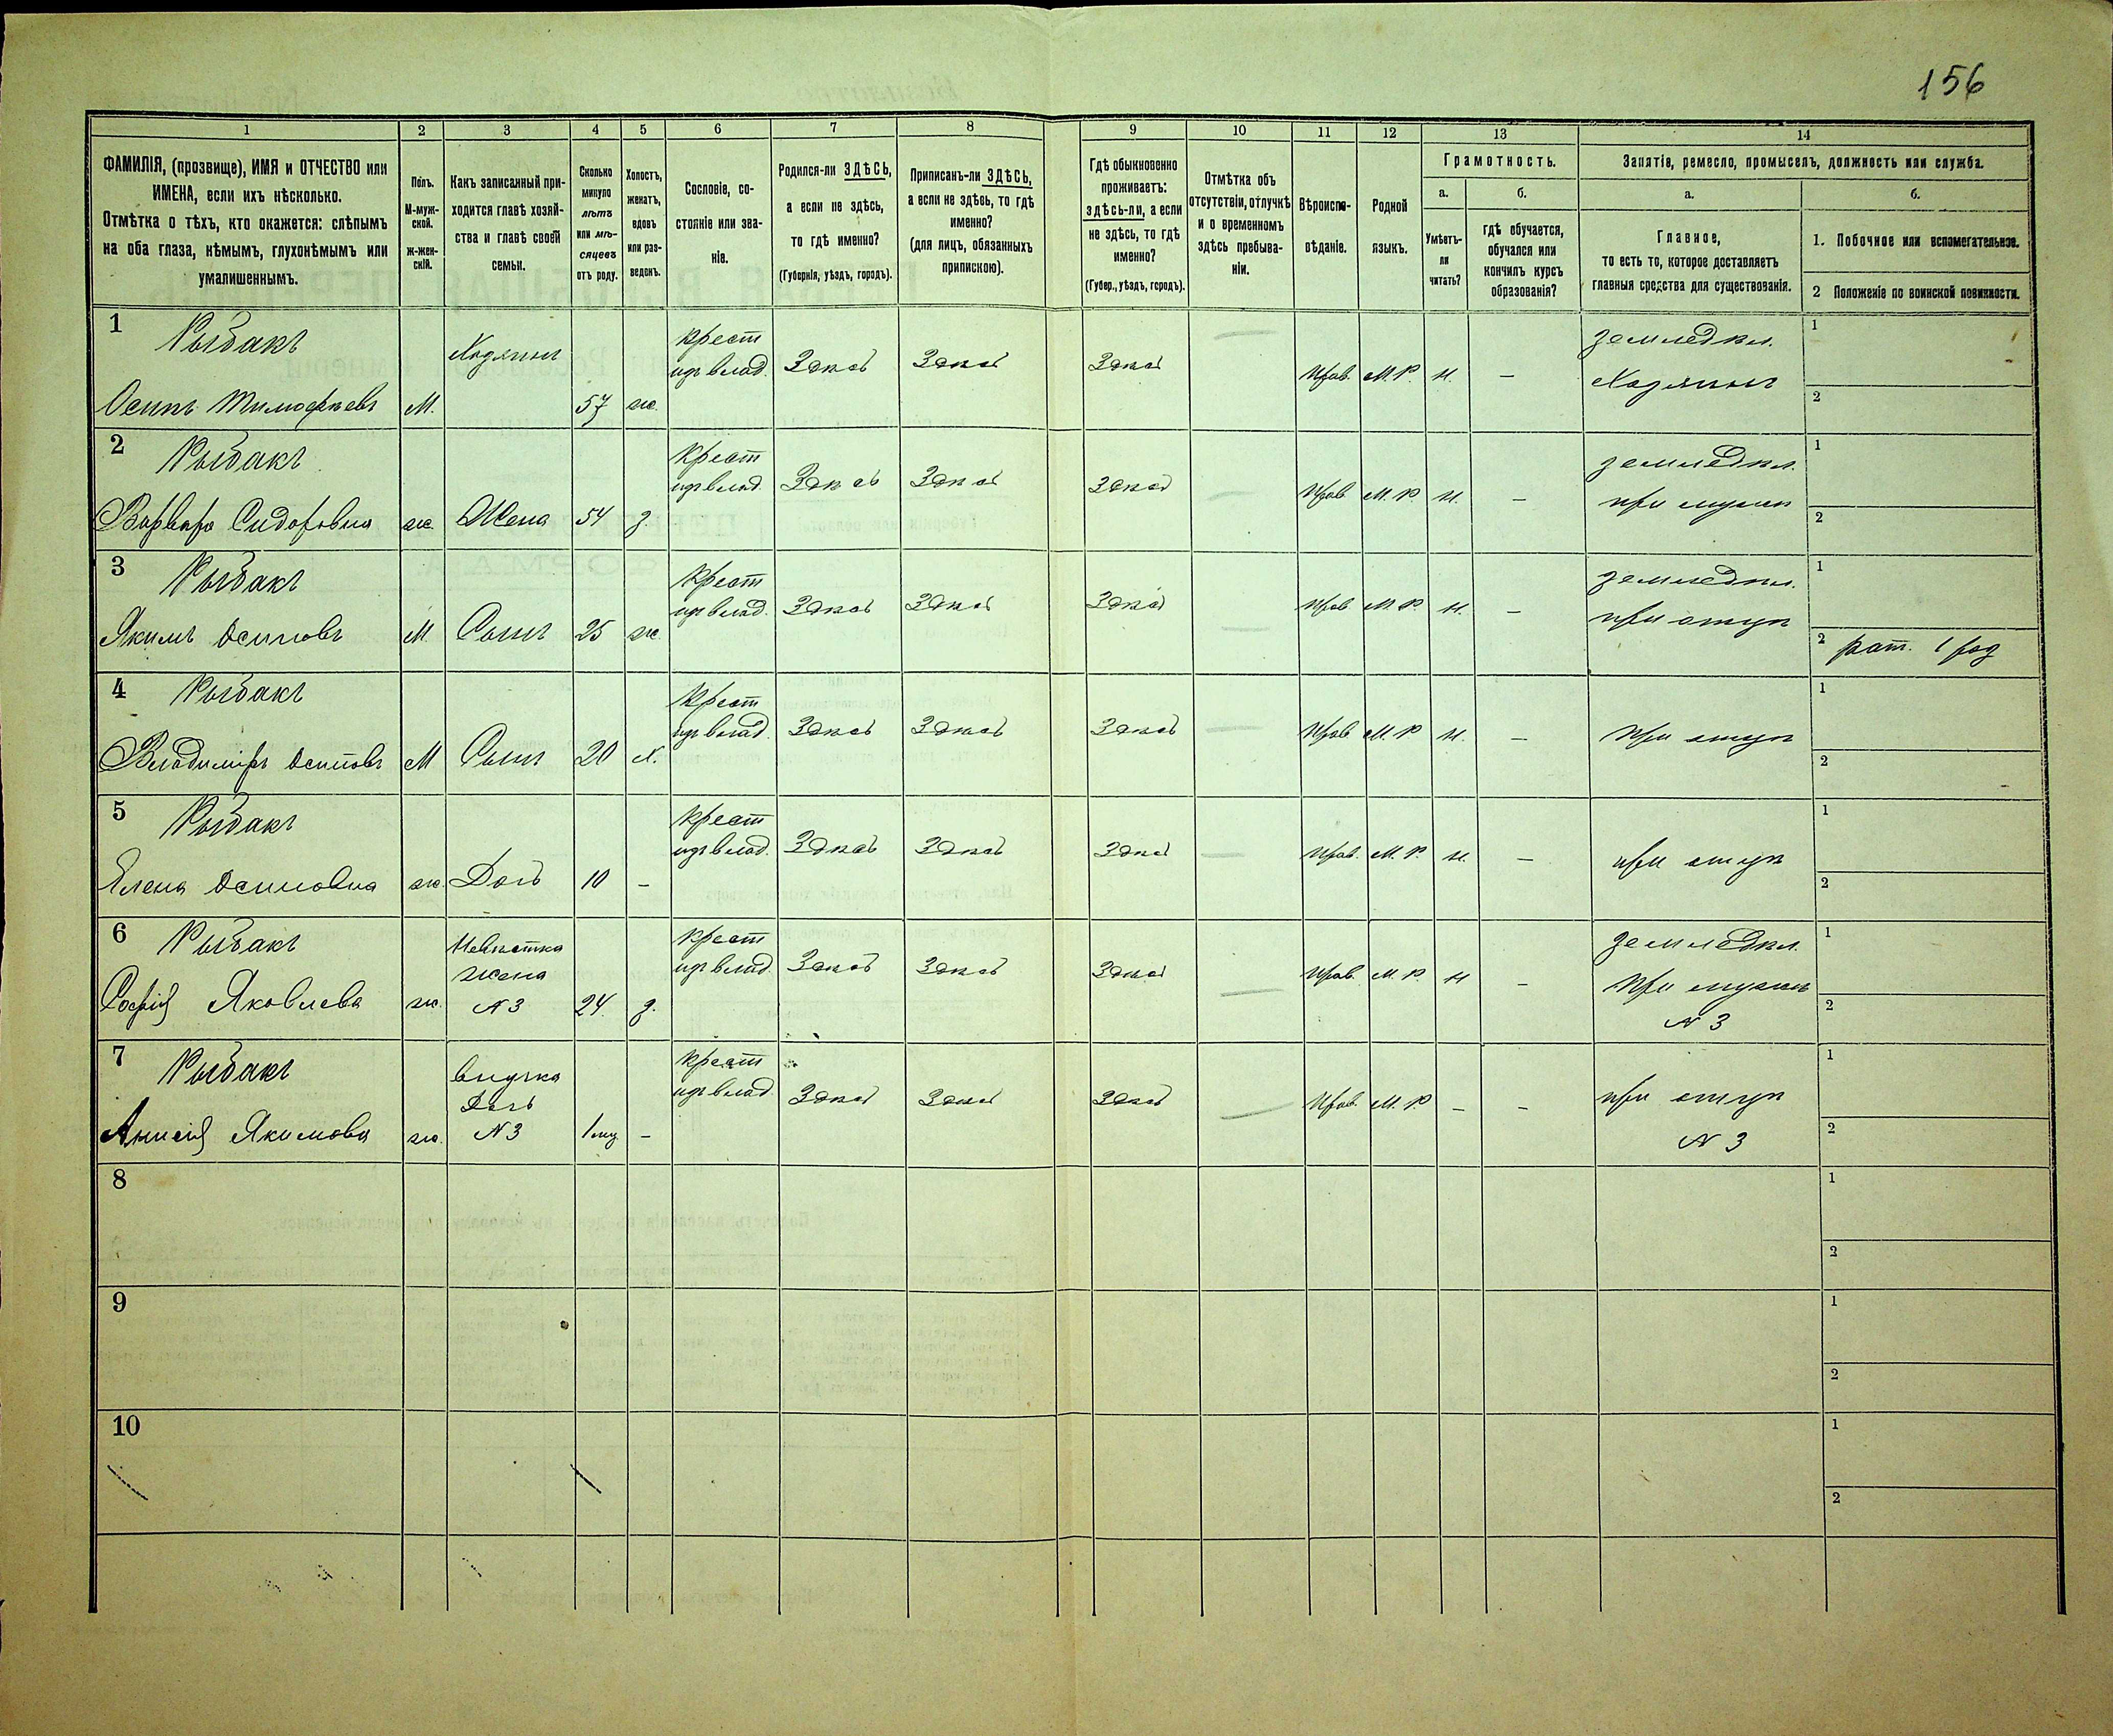 156
1 2 3 4 5 6 7 8 9 10 11 12 13 14
ФАМИЛІЯ, (прозвище), ИМЯ и ОТЧЕСТВО или
ИМЕНА, если ихъ нѣсколько.
Отмѣтка о тѣхъ, кто окажется: слѣпымъ
на оба глаза, нѣмымъ, глухонѣмымъ или
умалишеннымъ.
Полъ.
М-муж-
ской.
ж-жен-
скій.
Какъ записанный при-
ходится главѣ хозяй-
ства и главѣ своей
семьи.
Сколько
минуло
лѣтъ
или мѣ-
сяцевъ
отъ роду.
Холостъ,
женатъ,
вдовъ
или раз-
веденъ.
Сословіе, со-
стояніе или зва-
ніе.
Родился-ли ЗДѢСЬ,
а если не здѣсь,
то гдѣ именно?
(Губернія, уѣздъ, городъ).
Приписанъ-ли ЗДѢСЬ,
а если не здѣсь, то гдѣ
именно?
(для лицъ, обязанныхъ
припискою).
Гдѣ обыкновенно
проживаетъ:
здѣсь-ли, а если
не здѣсь, то гдѣ
именно?
(Губер., уѣздъ, городъ).
Отмѣтка объ
отсутствіи, отлучкѣ
и о временномъ
здѣсь пребыва-
ніи.
Вѣроиспо-
вѣданіе.
Родной
языкъ.
Грамотность.
а.
Умѣетъ-
ли
читать?
б.
гдѣ обучается,
обучался или
кончилъ курсъ
образованія?
Занятіе, ремесло, промыселъ, должность или служба.
а.
Главное,
то есть то, которое доставляетъ
главныя средства для существованія.
б.
1. Побочное или вспомогательное.
2 Положеніе по воинской повинности.
1 Рыбакъ Хозяинъ крест земледѣл. 1
изъ влад. Здѣсь Здѣсь Здѣсь — Прав. М. Р. Н. — Хозяинъ
Осипъ Тимофѣевъ М. 57 ж. 2
2 Рыбакъ крест земледѣл. 1
изъ влад. Здѣсь Здѣсь Здѣсь — Прав. М. Р. Н. — при мужѣ
Варвара Сидоровна ж. Жена 54 з. 2
3 Рыбакъ крест земледѣл. 1
изъ влад. Здѣсь Здѣсь Здѣсь — Прав М. Р. Н. — при отцѣ
Якимъ Осиповъ М Сынъ 25 ж. 2 рат. 1 раз
4 Рыбакъ крест 1
изъ влад. Здѣсь Здѣсь Здѣсь — Прав. М. Р Н. — При отцѣ
Владиміръ Осиповъ М Сынъ 20 х. 2
5 Рыбакъ крест 1
изъ влад. Здѣсь Здѣсь Здѣсь — Прав. М. Р. Н. — при отцѣ
Елена Осиповна ж. Дочь 10 — 2
6 Рыбакъ Невѣстка крест земледѣл. 1
жена изъ влад. Здѣсь Здѣсь Здѣсь — Прав. М. Р. Н — При мужѣ
Софія Яковлева ж. N 3 24. з. N 3 2
7 Рыбакъ внучка крест 1
Дочь изъ влад. Здѣсь Здѣсь Здѣсь — Прав. М. Р. — — при отцѣ
Анисія Якимова ж. N 3 1 мц — N 3 2
8 1
2
9 1
2
10 1
2